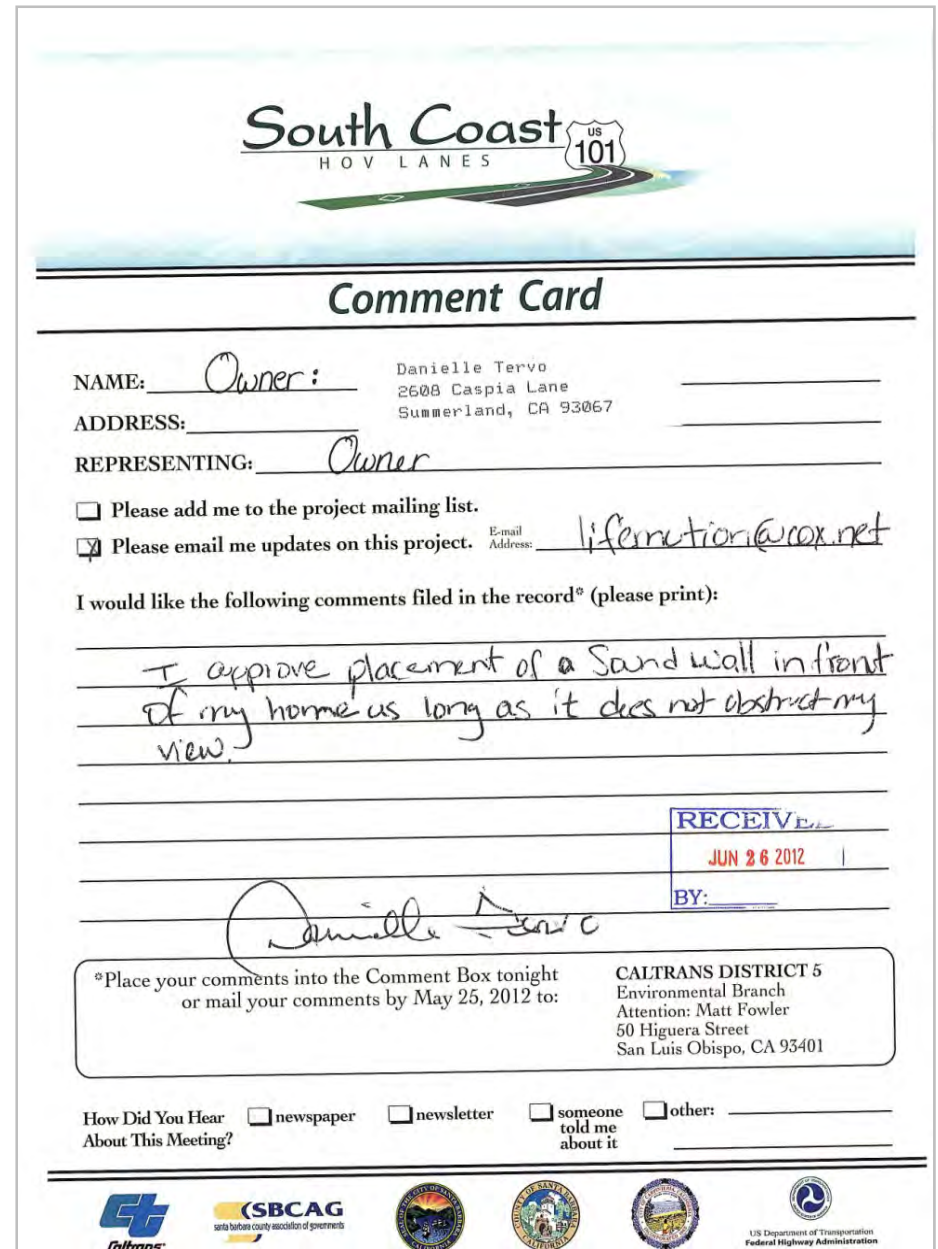 South Coast
HOV LANES
US
101
Comment Card
NAME: Owner:
Danielle Tervo
2608 Caspia Lane
Summerland, CA 93067
ADDRESS:
REPRESENTING: Owner
Please add me to the project mailing list.
Please email me updates on this project. E-mail Address:
I would like the following comments filed in the record* (please print):
I approve placement of a Sound wall in front
of my home as long as it does not obstruct my
view.
RECEIVED
JUN 26 2012
BY:
Danielle Tervo
*Place your comments into the Comment Box tonight
or mail your comments by May 25, 2012 to:
CALTRANS DISTRICT 5
Environmental Branch
Attention: Matt Fowler
50 Higuera Street
San Luis Obispo, CA 93401
How Did You Hear
About This Meeting?
newspaper
newsletter
someone
told me
about it
other:
Caltrans
SBCAG
santa barbara county association of governments
US Department of Transportation
Federal Highway Administration